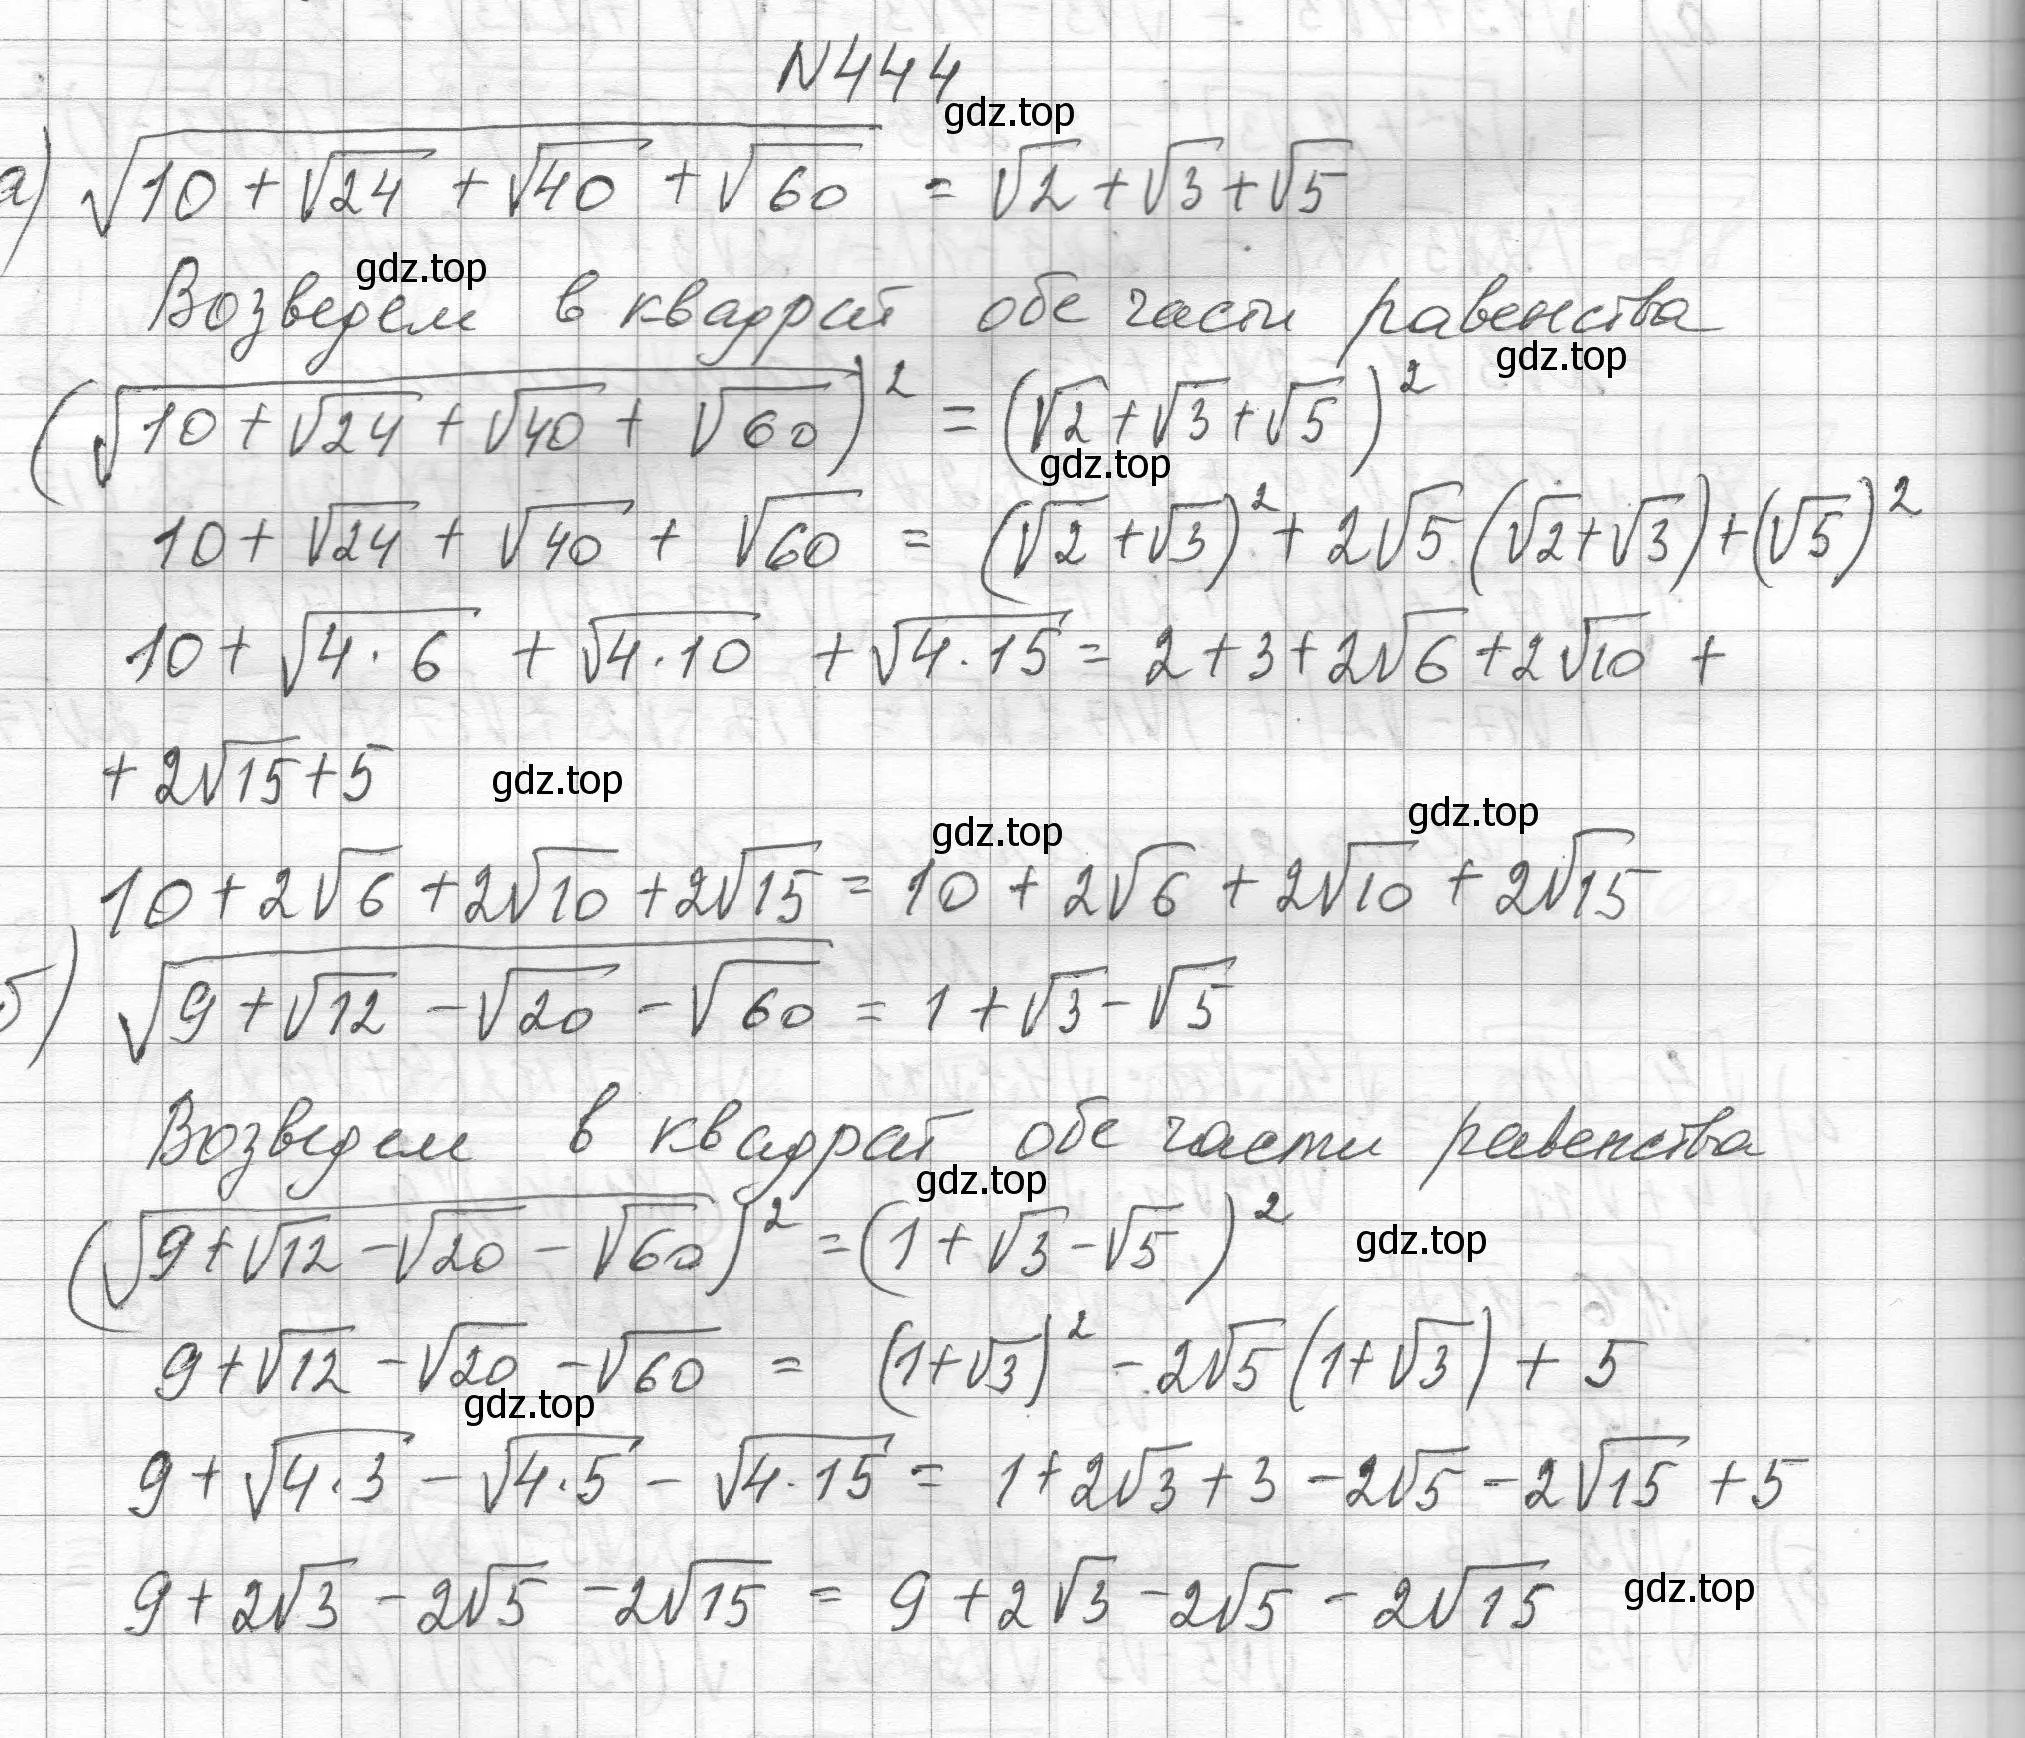 N444
gdz.top
а) √(10+√24+√40+√60) = √2+√3+√5
gdz.top
Возведем в квадрат обе части равенства
gdz.top
(√(10+√24+√40+√60))² = (√2+√3+√5)²
gdz.top
10+√24+√40+√60 = (√2+√3)²+2√5(√2+√3)+(√5)²
10+√(4·6)+√(4·10)+√(4·15) = 2+3+2√6+2√10+
+2√15+5
gdz.top
gdz.top
gdz.top
10+2√6+2√10+2√15 = 10+2√6+2√10+2√15
б) √(9+√12-√20-√60) = 1+√3-√5
Возведем в квадрат обе части равенства
gdz.top
(√(9+√12-√20-√60))² = (1+√3-√5)²
gdz.top
9+√12-√20-√60 = (1+√3)²-2√5(1+√3)+5
gdz.top
9+√(4·3)-√(4·5)-√(4·15) = 1+2√3+3-2√5-2√15+5
9+2√3-2√5-2√15 = 9+2√3-2√5-2√15
gdz.top